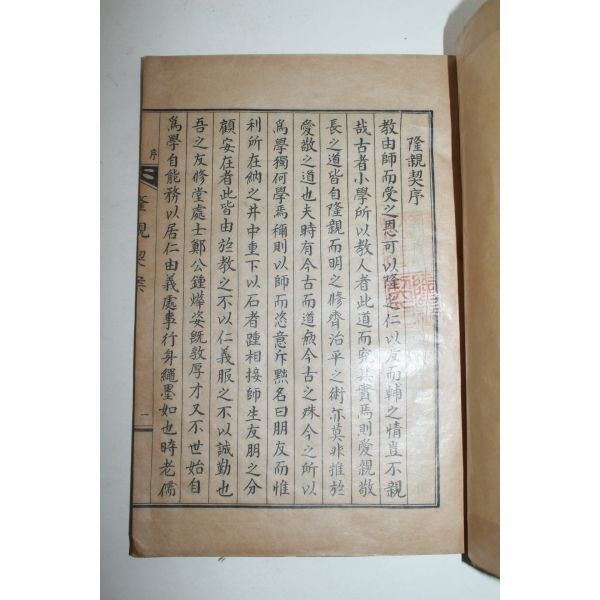 隆親契序
教由師而受之恩可以隆也仁以友而輔之情豈不親
哉古者小學所以教人者此道而究其實焉則愛親敬
長之道皆自隆親而明之修齊治平之術亦莫非推於
愛敬之道也夫時有今古而道無今古之殊今之所以
爲學獨何學焉稱則以師而恣意斥黜名曰朋友而惟
利所在納之井中重下以石者踵相接師生友朋之分
顧安在者此皆由於教之不以仁義服之不以誠勤也
吾之友修堂處士鄭公鍾燁姿旣敦厚才又不世始自
爲學自能務以居仁由義處事行身繩墨如也時老儒
序
隆親契案
一